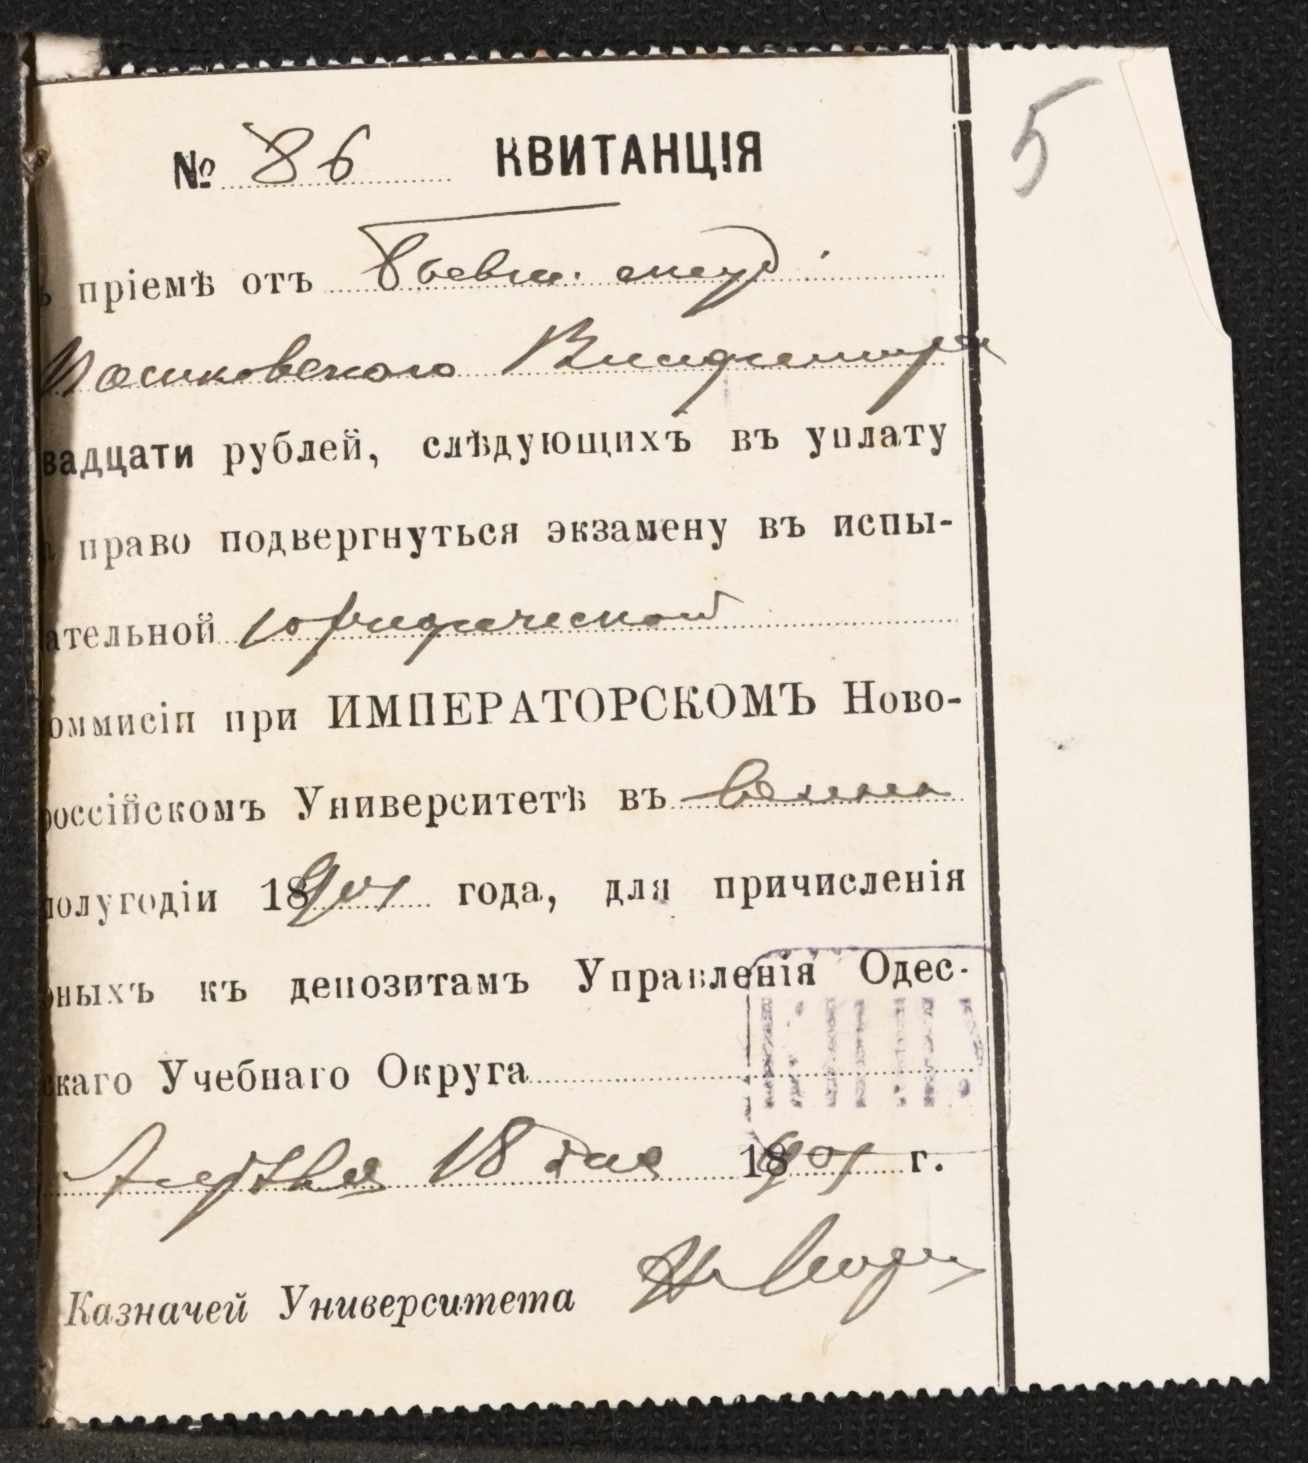 № 86 КВИТАНЦІЯ
5
ъ пріемѣ отъ бывш. студ.
Войтковскаго Владиміра
вадцати рублей, слѣдующихъ въ уплату
а право подвергнуться экзамену въ испы-
ательной юридической
оммисіи при ИМПЕРАТОРСКОМЪ Ново-
россійскомъ Университетѣ въ
полугодіи 18901 года, для причисленія
оныхъ къ депозитамъ Управленія Одес-
скаго Учебнаго Округа
18 1901 г.
Казначей Университета